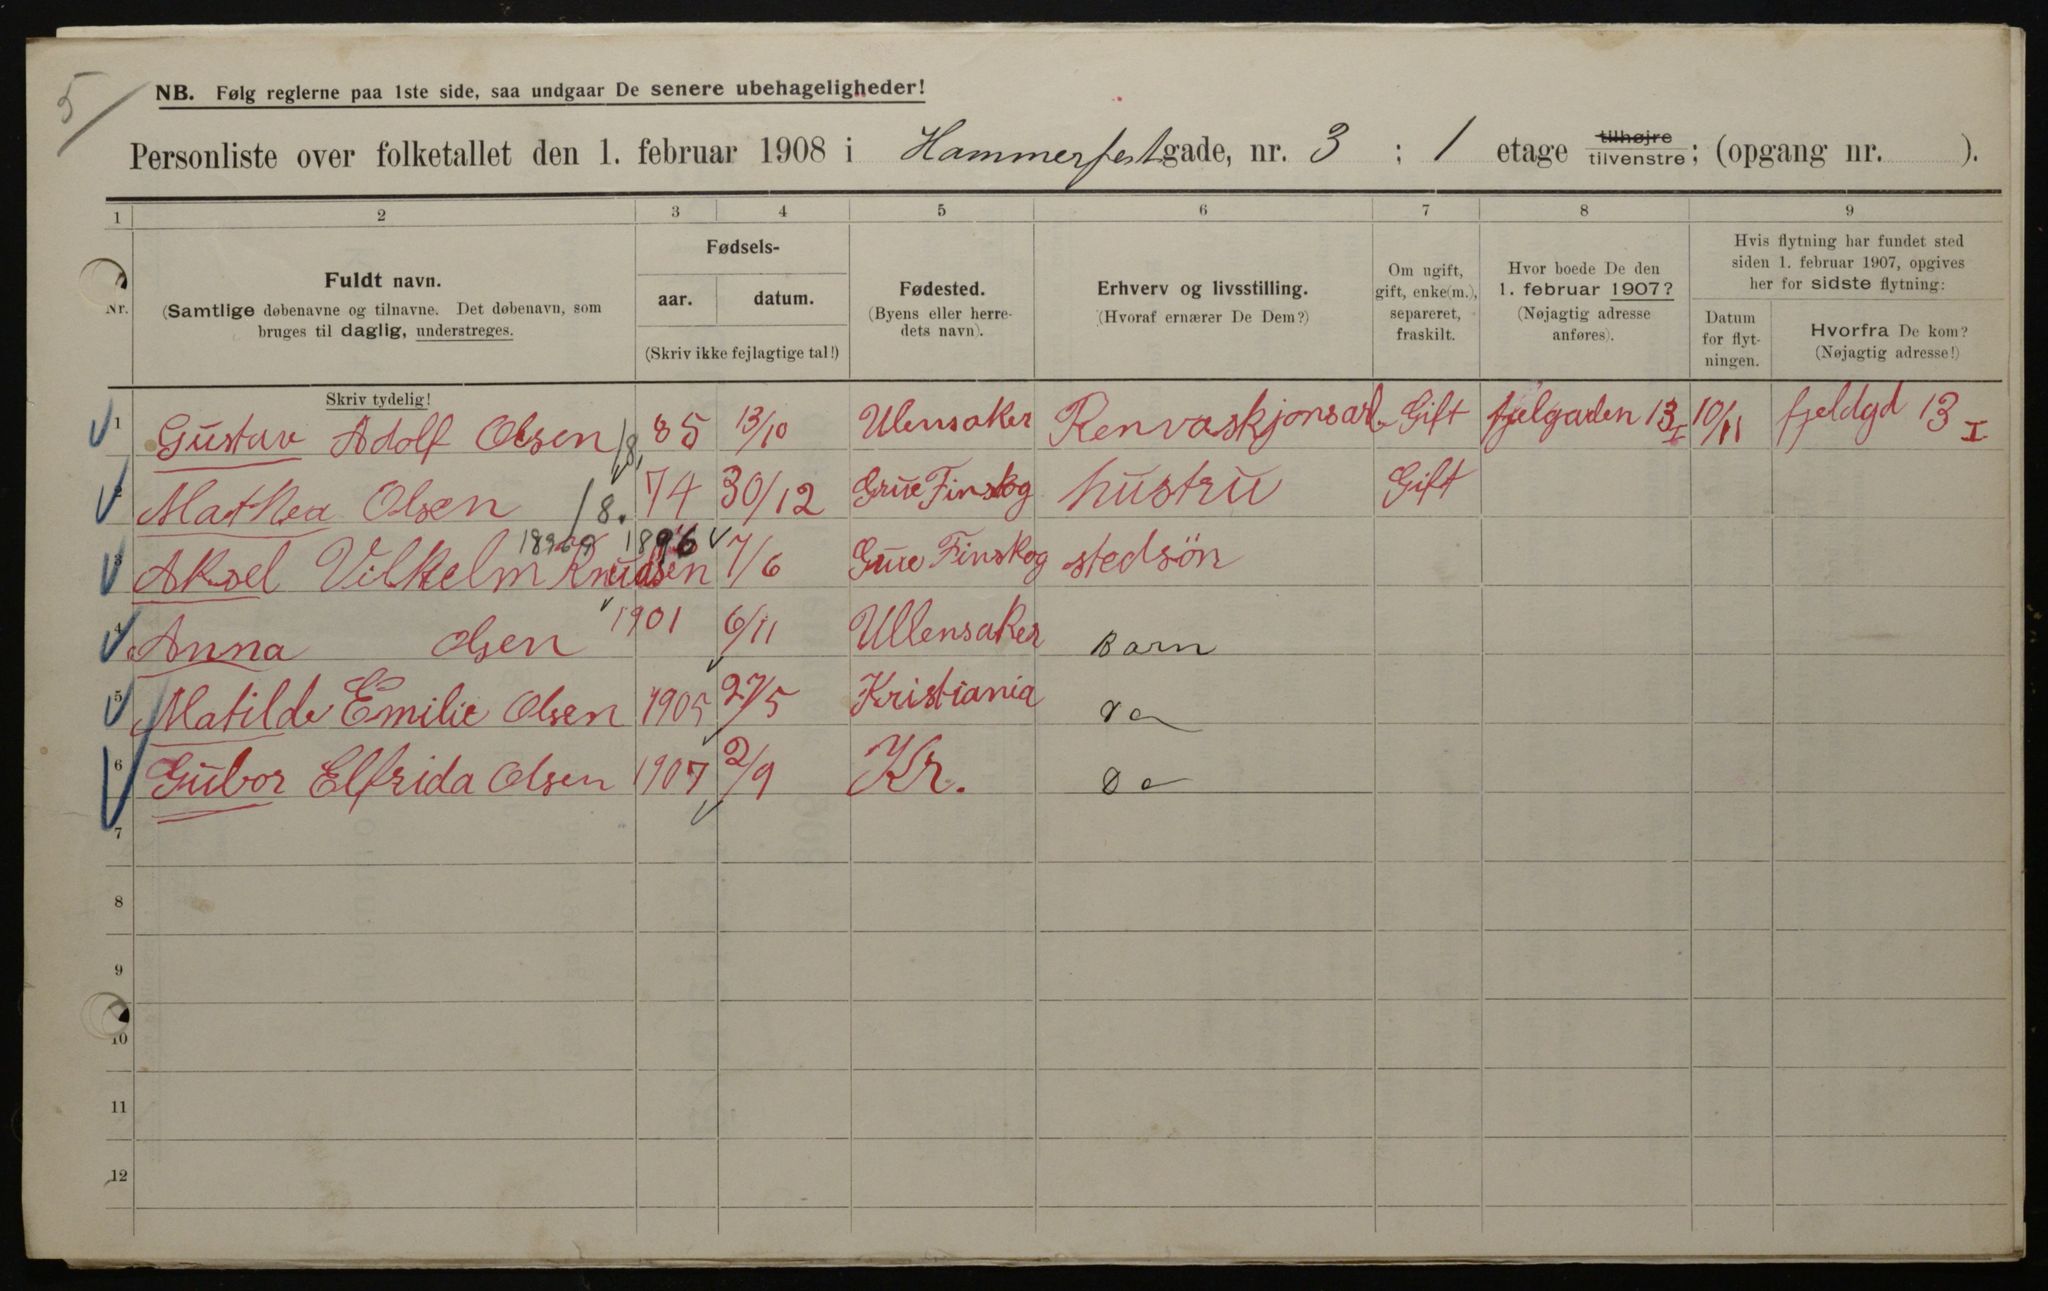 5
NB. Følg reglerne paa 1ste side, saa undgaar De senere ubehageligheder!
Personliste over folketallet den 1. februar 1908 i Hammerfestgade, nr. 3 ; 1 etage tilhøjre tilvenstre; (opgang nr. ).
1 2 3 4 5 6 7 8 9
Nr.
Fuldt navn.
(Samtlige døbenavne og tilnavne. Det døbenavn, som
bruges til daglig, understreges.
Skriv tydelig!
Fødsels-
aar. datum.
(Skriv ikke fejlagtige tal!)
Fødested.
(Byens eller herre-
dets navn).
Erhverv og livsstilling.
(Hvoraf ernærer De Dem?)
Om ugift,
gift, enke(m.),
separeret,
fraskilt.
Hvor boede De den
1. februar 1907?
(Nøjagtig adresse
anføres).
Hvis flytning har fundet sted
siden 1. februar 1907, opgives
her for sidste flytning:
Datum
for flyt-
ningen.
Hvorfra De kom?
(Nøjagtig adresse!)
1 Gustav Adolf Olsen 18 85 13/10 Ulensaker Renvaskjonsarb. Gift fjelgaden 13 I 10/11 fjeldgd 13 I
2 Mathea Olsen 18. 74 30/12 Grue Finskog hustru Gift
3 Aksel Vilhelm Knudsen 1896 7/6 Grue Finskog stedsön
4 Anna Olsen 1901 6/11 Ullensaker Barn
5 Matilde Emilie Olsen 1905 27/5 Kristiania Do
6 Gubor Elfrida Olsen 1907 2/9 Kr. Do
7
8
9
10
11
12